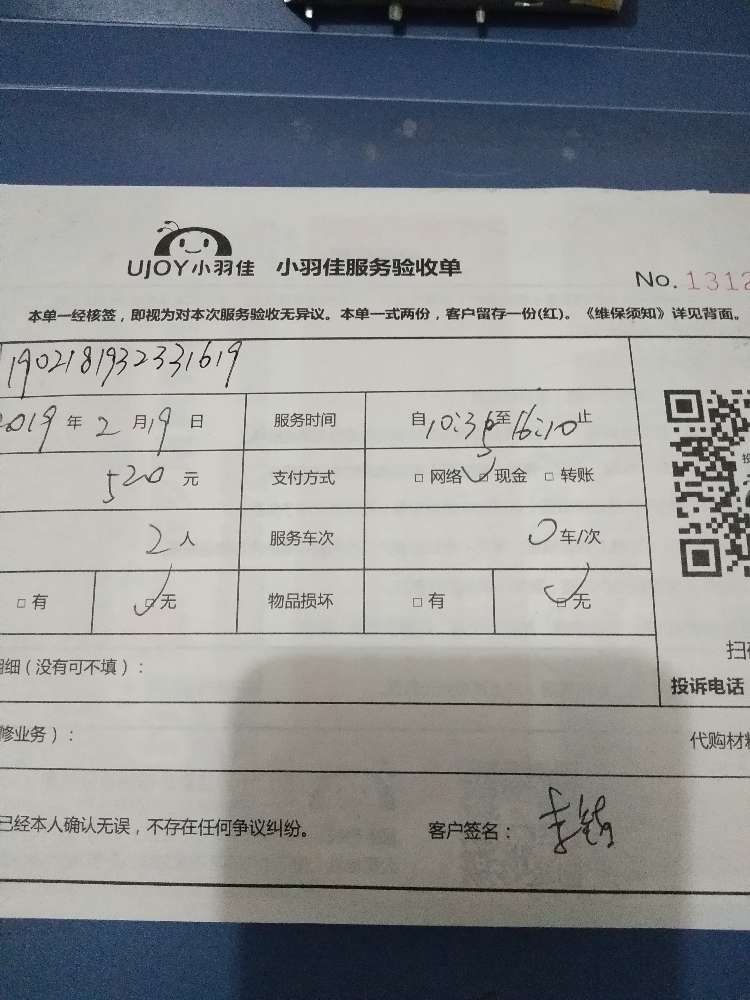 UJOY小羽佳 小羽佳服务验收单
No. 1312
本单一经核签，即视为对本次服务验收无异议。本单一式两份，客户留存一份(红)。《维保须知》详见背面。
1902181932331619
2019 年 2 月 19 日 服务时间 自 10:35 至 16:10 止
520 元 支付方式 □ 网络 ☑ 现金 □ 转账
2 人 服务车次 0 车/次
□ 有 ☑ 无 物品损坏 □ 有 ☑ 无
明细（没有可不填）：
投诉电话
修业务）：
代购材料
已经本人确认无误，不存在任何争议纠纷。 客户签名：